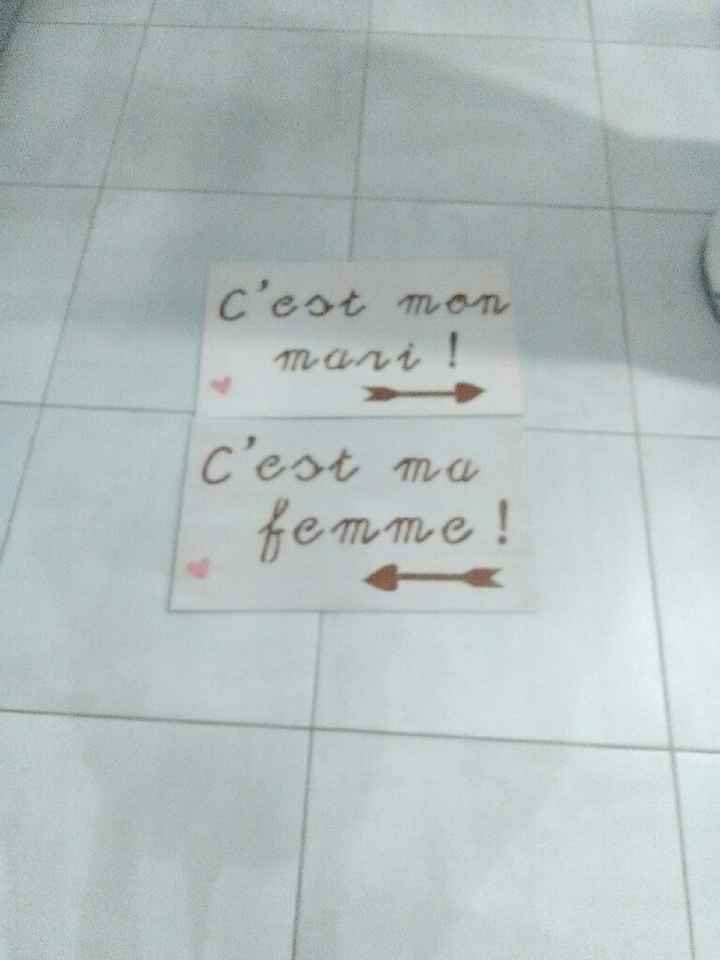 C'est mon
mari !
C'est ma
femme !